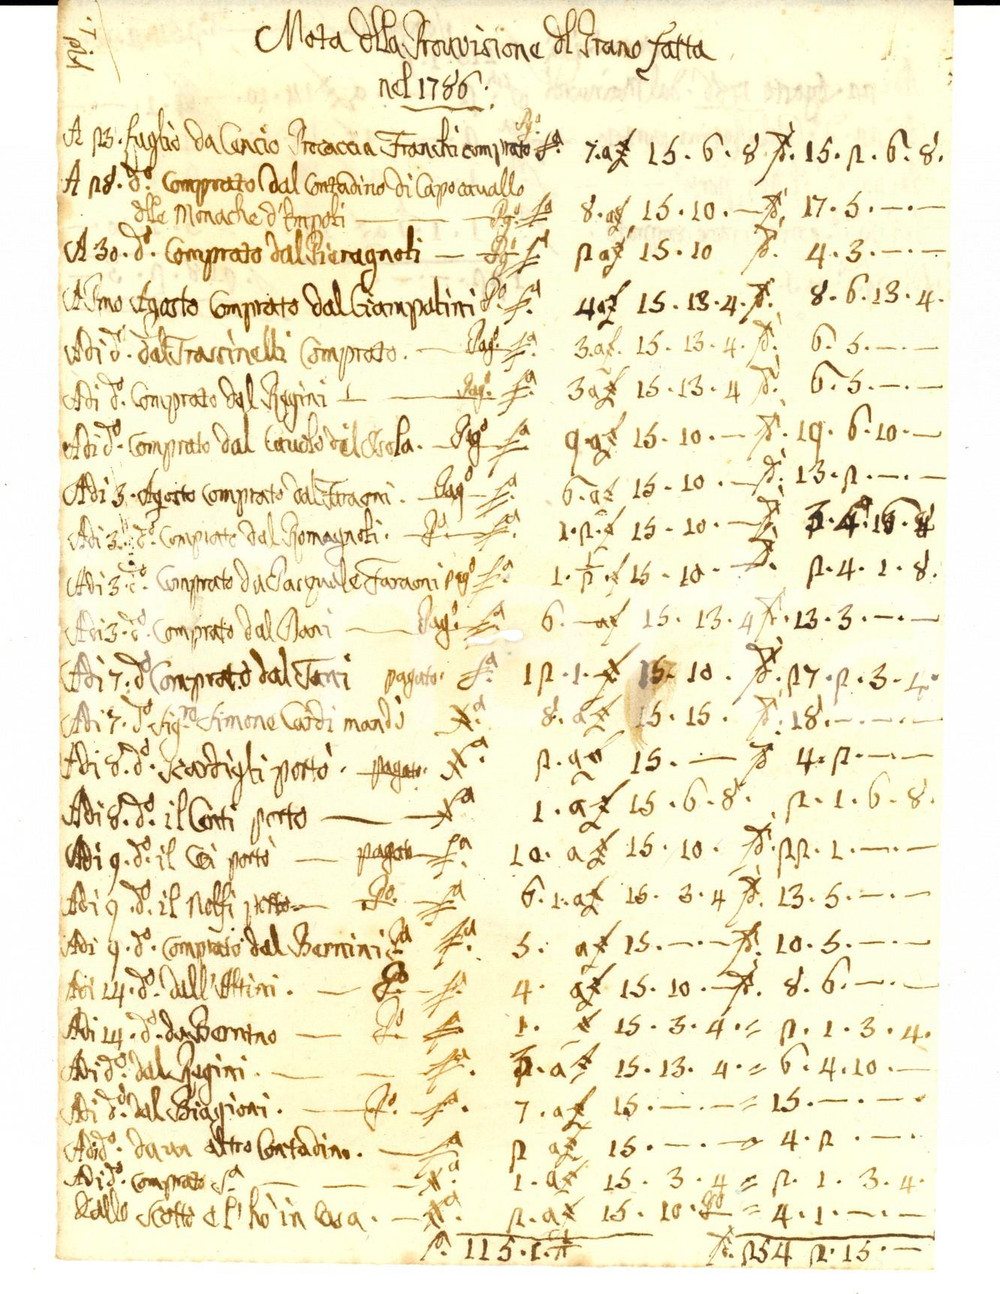 Nota della Provvisione del Grano fatta
nel 1786.
A 23. Luglio da Cencio Procaccia Franchi comprato Pgo. Sa. 7. a £ 15. 6. 8 15. 2. 6. 8.
A 28. do. Comprato dal Contadino di Capocavallo
delle Monache d'Empoli — Pgo. Sa. 8. a £ 15. 10. — 17. 5. — —
A 30. do. Comprato dal Pieragnoli — Pgo. Sa. 2 a £ 15. 10 4. 3. — —
A Pmo Agosto Comprato dal Giampalini Po. Sa. 4 a £ 15. 13. 4. 8. 6. 13. 4.
Adi do. dal Frassinelli Comprato. — Pago. Sa. 3. a £. 15. 13. 4. 6. 5. — —
Adi do. Comprato dal Regini — Pago. Sa. 3 a £ 15. 13. 4 6. 5. — —
Adi do. Comprato dal Cavolo dell Isola. — Pago. Sa. 9. a £ 15. 10. — 19. 6. 10. —
Adi 3. Agosto Comprato dal Faraoni. — Pago Sa. 6. a £ 15. 10 — 13. 2. — —
Adi 3. do. Comprato dal Romagnoli. — Po. Sa. 1. 2. £ 15. 10. —
Adi 3. do. Comprato da Pasquale Faraoni Pago Sa. 1. £ 15. 10. — 2. 4. 1. 8.
Adi 3. do. Comprato dal Nani — Pago. Sa. 6. — a £ 15. 13. 4 13. 3. — —
Adi 7. do. Comprato dal Fani pagato. Sa. 12. 1. £ 15. 10. 27. 2. 3. 4.
Adi 7. do. Sigre. Simone Cardi mandò Sa. 8. a £ 15. 15. 18. — — —
Adi 8. do. Scardigli portò. pagato. Sa. 2. a £ 15. — 4. 2. — —
Adi 8. do. il Conti porto — Sa. 1. a £ 15. 6. 8. 2. 1. 6. 8.
Adi 9. do. il Cei portò — pagato Sa. 10. a £ 15. 10. 22. 1. — —
Adi 9. do. il Neffi porto — Po. Sa. 6. 1. a £ 15. 3. 4 13. 5. — —
Adi 9. do. Comprato dal Bernini Pa Sa. 5. a £ 15. — — 10. 5. — —
Adi 14. do. dall' — Po Sa. 4. a £ 15. 10. — 8. 6. — —
Adi 14. do. da Bernino — Po. Sa. 1. £ 15. 3. 4. = 2. 1. 3. 4.
Adi do. dal Regini. — — Sa. 3. a £ 15. 13. 4. = 6. 4. 10. —
Adi do. dal Biagioni. — Po. Sa. 7. a £ 15. — — = 15. — — —
Adi do. da un altro Contadino. — Sa 2 a £ 15. — — = 4. 2. — —
Adi do. Comprato Sa — — Sa. 1. a £ 15. 3. 4 = 2. 1. 3. 4.
Dallo Scotto e l' hò in Casa. — Sa. 2. a £ 15. 10. = 4. 1. — —
Sa. 115. 1. 254 2. 15. —